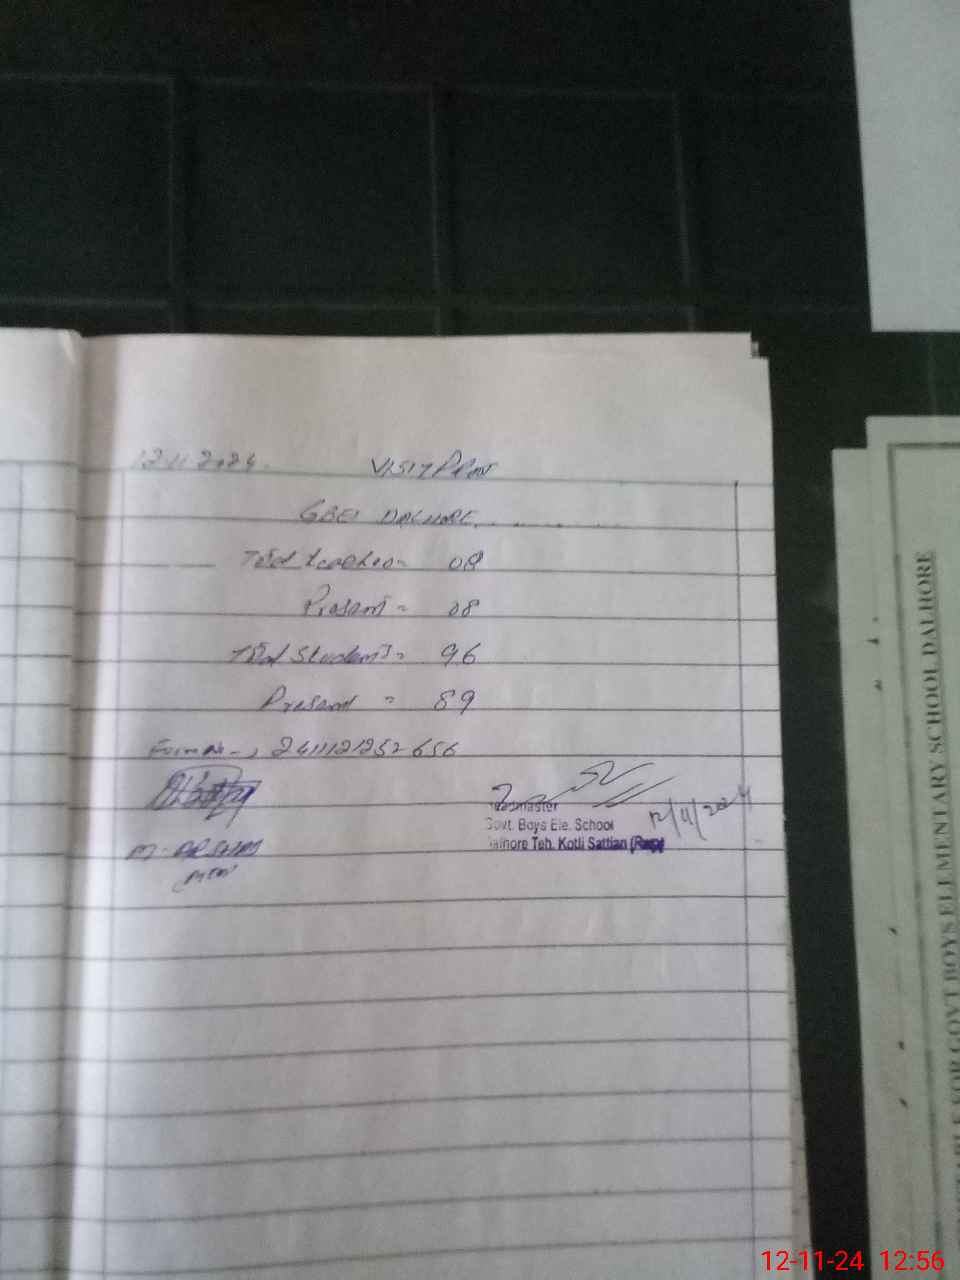 12.11.2024. VISIT PROOF
GBES DALHORE
Total teachers = 08
Present = 08
Total Students = 96
Present = 89
Form No -, 2411121252656
M. ARSHAD
(MEA)
Headmaster
Govt. Boys Ele. School
Dalhore Teh. Kotli Sattian (Rwp)
12/11/2024
TABLE FOR GOVT BOYS ELEMENTARY SCHOOL DALHORE
12-11-24 12:56